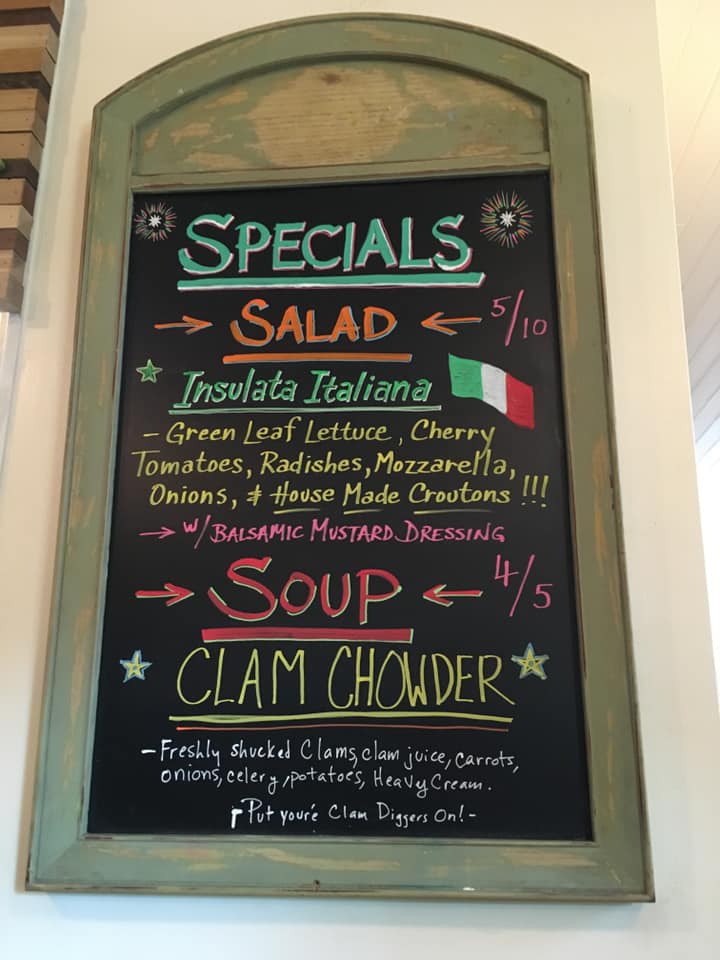 SPECIALS
→ SALAD ← 5/10
Insulata Italiana
- Green Leaf Lettuce, Cherry
Tomatoes, Radishes, Mozzarella,
Onions, & House Made Croutons !!!
→ w/ BALSAMIC MUSTARD DRESSING
→ SOUP ← 4/5
CLAM CHOWDER
- Freshly shucked Clams, clam juice, carrots,
onions, celery, potatoes, Heavy Cream.
- Put youre' Clam Diggers On! -